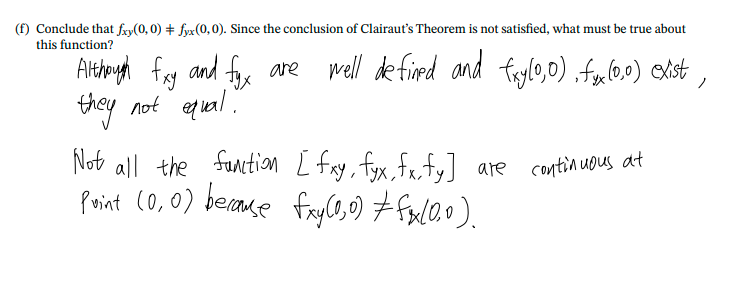 (f) Conclude that fxy(0,0) ≠ fyx(0,0). Since the conclusion of Clairaut's Theorem is not satisfied, what must be true about
this function?
Although fxy and fyx are well defined and fxy(0,0), fyx(0,0) exist,
they not equal.
Not all the function [fxy, fyx, fx, fy] are continuous at
Point (0,0) because fxy(0,0) ≠ fyx(0,0).